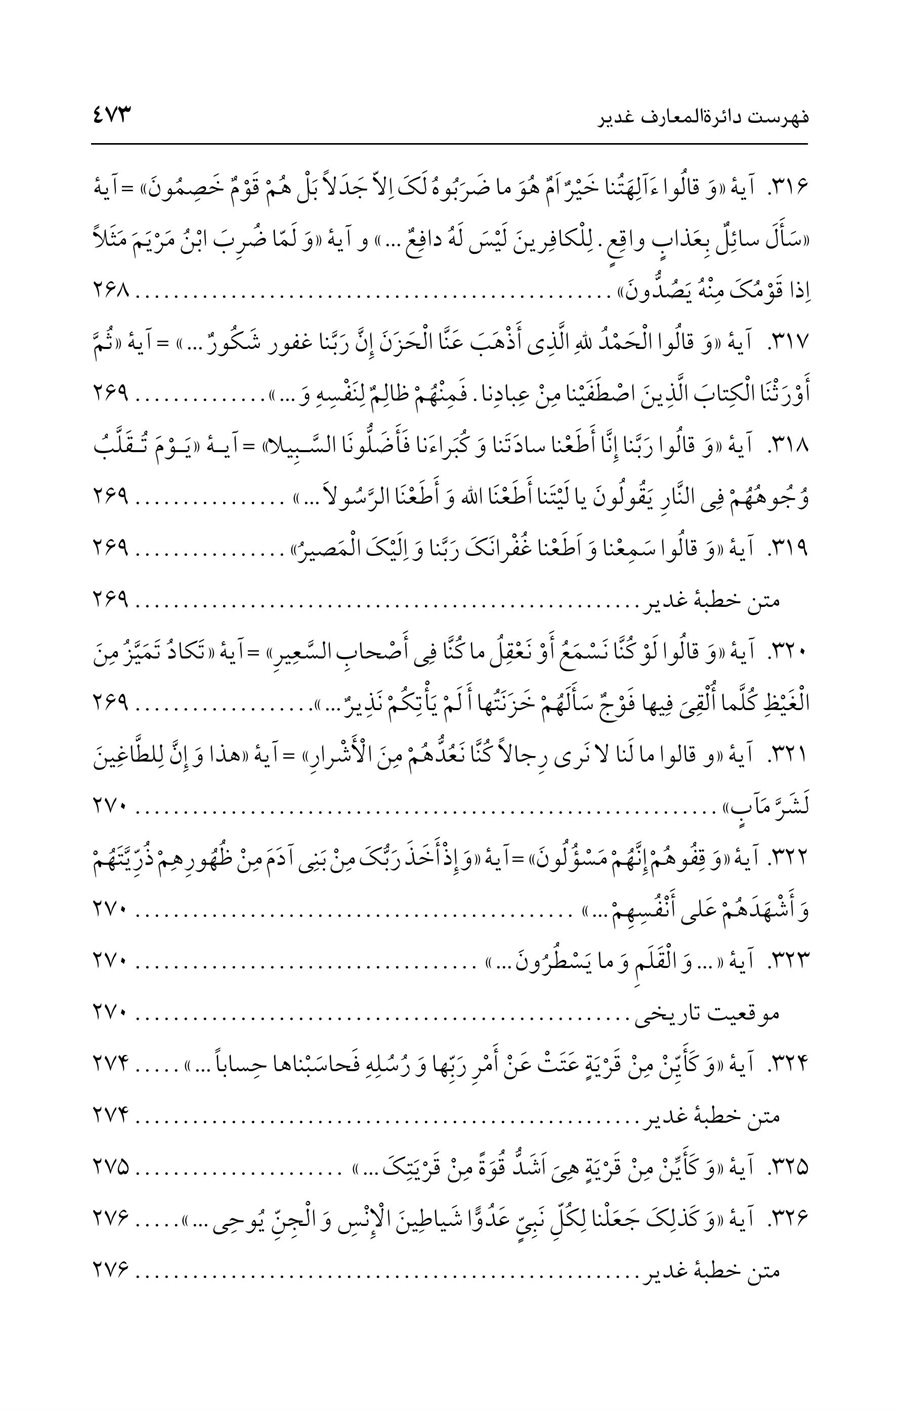 فهرست دائرةالمعارف غدیر ۴۷۳
۳۱۶. آیهٔ «وَ قالُوا ءَآلِهَتُنا خَیْرٌ اَمْ هُوَ ما ضَرَبُوهُ لَکَ اِلاّ جَدَلاً بَلْ هُمْ قَوْمٌ خَصِمُونَ» = آیهٔ
«سَأَلَ سائِلٌ بِعَذابٍ واقِعٍ . لِلْکافِرینَ لَیْسَ لَهُ دافِعٌ ...» و آیهٔ «وَ لَمّا ضُرِبَ ابْنُ مَرْیَمَ مَثَلاً
اِذا قَوْمُکَ مِنْهُ یَصُدُّونَ» .................................................. ۲۶۸
۳۱۷. آیهٔ «وَ قالُوا الْحَمْدُ للهِ الَّذِی أَذْهَبَ عَنَّا الْحَزَنَ إِنَّ رَبَّنا غفور شَکُورٌ ...» = آیهٔ «ثُمَّ
أَوْرَثْنَا الْکِتابَ الَّذِینَ اصْطَفَیْنا مِنْ عِبادِنا . فَمِنْهُمْ ظالِمٌ لِنَفْسِهِ وَ ...» .............. ۲۶۹
۳۱۸. آیهٔ «وَ قالُوا رَبَّنا إِنَّا أَطَعْنا سادَتَنا وَ کُبَراءَنا فَأَضَلُّونَا السَّبِیلا» = آیـهٔ «یَـوْمَ تُـقَلَّبُ
وُجُوهُهُمْ فِی النَّارِ یَقُولُونَ یا لَیْتَنا أَطَعْنَا الله وَ أَطَعْنَا الرَّسُولاَ ...» ................ ۲۶۹
۳۱۹. آیهٔ «وَ قالُوا سَمِعْنا وَ اَطَعْنا غُفْرانَکَ رَبَّنا وَ اِلَیْکَ الْمَصیرُ» ................ ۲۶۹
متن خطبهٔ غدیر ..................................................... ۲۶۹
۳۲۰. آیهٔ «وَ قالُوا لَوْ کُنَّا نَسْمَعُ أَوْ نَعْقِلُ ما کُنَّا فِی أَصْحابِ السَّعِیرِ» = آیهٔ «تَکادُ تَمَیَّزُ مِنَ
الْغَیْظِ کُلَّما أُلْقِیَ فِیها فَوْجٌ سَأَلَهُمْ خَزَنَتُها أَ لَمْ یَأْتِکُمْ نَذِیرٌ ...» ................... ۲۶۹
۳۲۱. آیهٔ «و قالوا ما لَنا لا نَری رِجالاً کُنَّا نَعُدُّهُمْ مِنَ الْأَشْرارِ» = آیهٔ «هذا وَ إِنَّ لِلطَّاغِینَ
لَشَرَّ مَآبٍ» ............................................................. ۲۷۰
۳۲۲. آیهٔ «وَ قِفُوهُمْ إِنَّهُمْ مَسْؤُلُونَ» = آیهٔ «وَ إِذْ أَخَذَ رَبُّکَ مِنْ بَنِی آدَمَ مِنْ ظُهُورِهِمْ ذُرِّیَّتَهُمْ
وَ أَشْهَدَهُمْ عَلی أَنْفُسِهِمْ ...» .............................................. ۲۷۰
۳۲۳. آیهٔ «... وَ الْقَلَمِ وَ ما یَسْطُرُونَ ...» .................................... ۲۷۰
موقعیت تاریخی .................................................... ۲۷۰
۳۲۴. آیهٔ «وَ کَأَیِّنْ مِنْ قَرْیَةٍ عَتَتْ عَنْ أَمْرِ رَبِّها وَ رُسُلِهِ فَحاسَبْناها حِساباً ...» ..... ۲۷۴
متن خطبهٔ غدیر ..................................................... ۲۷۴
۳۲۵. آیهٔ «وَ کَأَیِّنْ مِنْ قَرْیَةٍ هِیَ اَشَدُّ قُوَةً مِنْ قَرْیَتِکَ ...» ...................... ۲۷۵
۳۲۶. آیهٔ «وَ کَذلِکَ جَعَلْنا لِکُلِّ نَبِیٍّ عَدُوًّا شَیاطِینَ الْإِنْسِ وَ الْجِنِّ یُوحِی ...» ..... ۲۷۶
متن خطبهٔ غدیر ..................................................... ۲۷۶